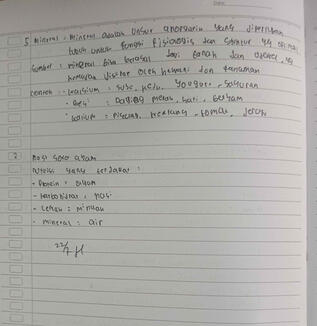 5 Mineral : Mineral adalah unsur anorganik yang diperlukan
tubuh untuk fungsi fisiologis dan struktur yg
Sumber : mineral bisa berasal dari tanah dan yg
kemudian oleh hewan dan tanaman
contoh : - kalsium : susu, keju, yougurt, sayuran
- Besi : Daging merah, hati, bayam
- kalium : Pisang, kentang, tomat, jeruk
2 Nasi soto ayam
Nutrisi yang terdapat :
- Protein : ayam
- karbohidrat : nasi
- Lemak : minyak
- mineral : air